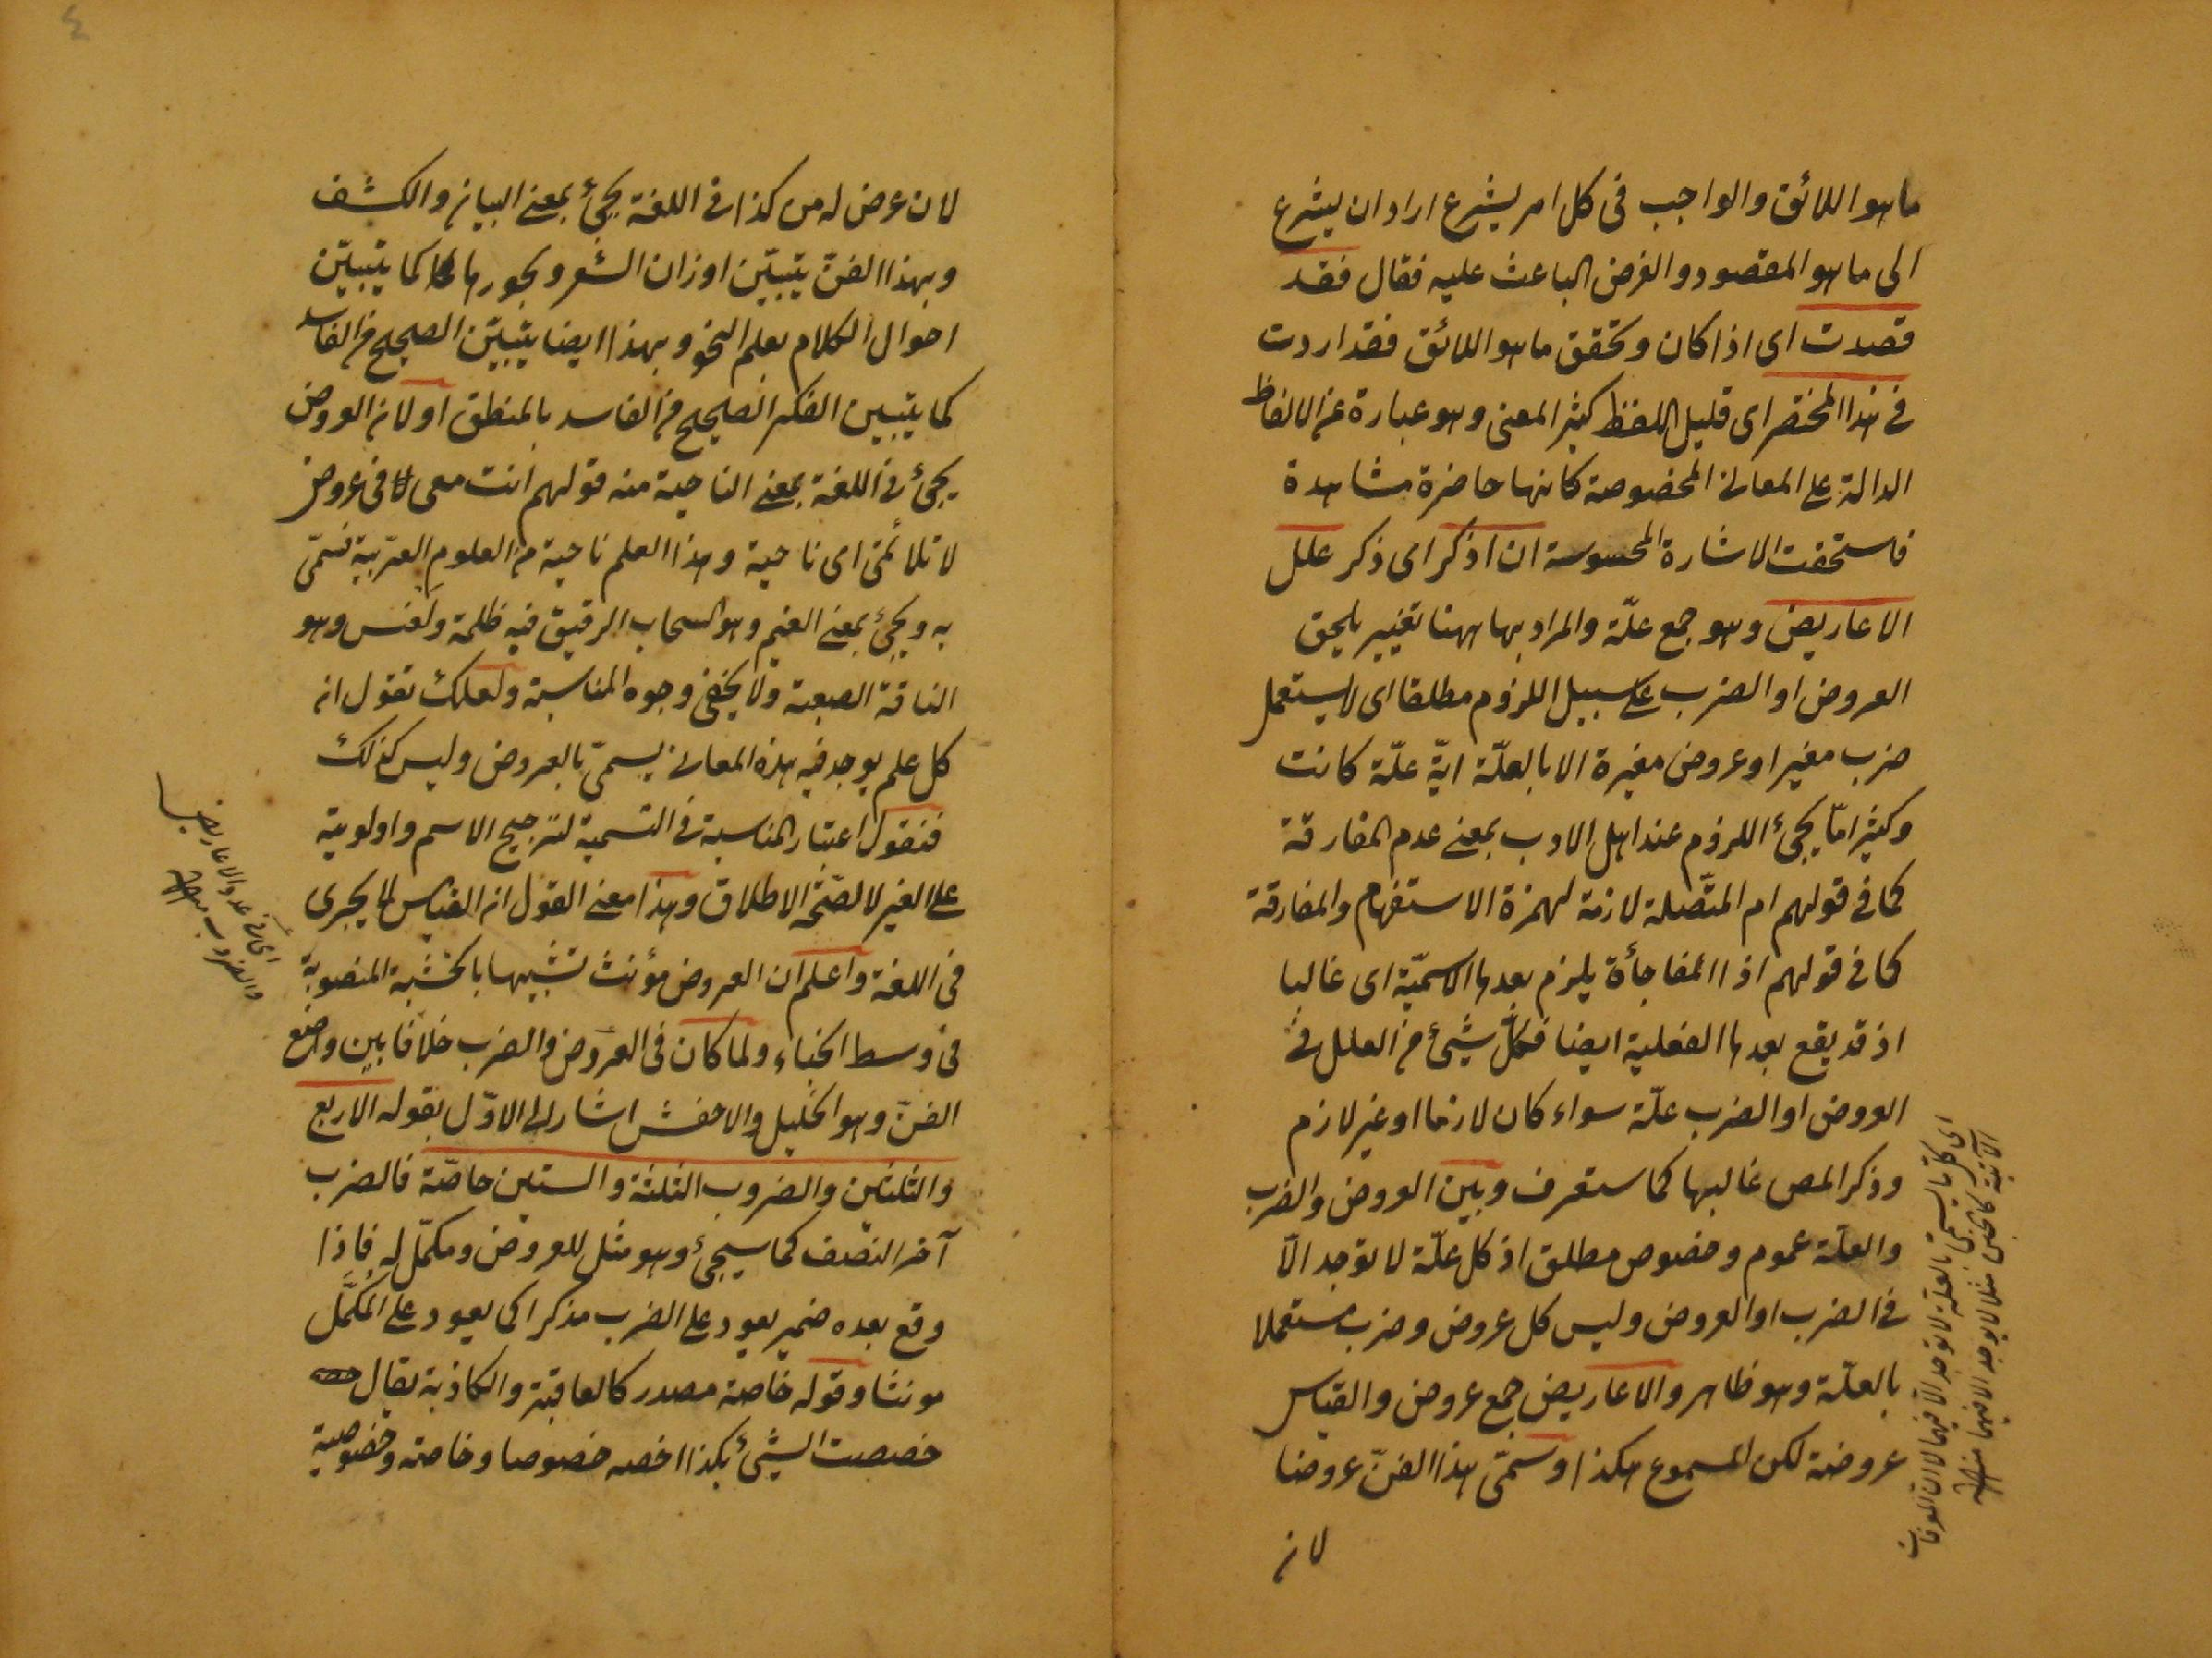 ما هو اللائق والواجب فى كل امر يشرع اراد ان يشرع
الى ما هو المقصود والغرض الباعث عليه فقال فقد
قصدت اى اذا كان وتحقق ما هو اللائق فقد اردت
فى هذا المختصر اى قليل اللفظ كثير المعنى وهو عبارة عن الالفاظ
الدالة على المعانى المخصوصة كانها حاضرة مشاهدة
فاستحقت الاشارة المحسوسة ان اذكر اى ذكر علل
الاعاريض وهو جمع علّة والمراد بها ههنا تغيير يلحق
العروض او الضرب على سبيل اللزوم مطلقا اى لا يستعمل
ضرب مغير او عروض مغيرة الا بالعلّة ايّة علّة كانت
وكثيرا مّا يجئ اللزوم عند اهل الادب بمعنى عدم المفارقة
كما فى قولهم ام المتّصلة لازمة لهمزة الاستفهام والمفارقة
كما فى قولهم اذا المفاجأة يلزم بعدها الاسميّة اى غالبا
اذ قد يقع بعدها الفعلية ايضا فكلّ شيئ من العلل فى
العروض او الضرب علّة سواء كان لازما او غير لازم
وذكر المص غالبها كما ستعرف وبين العروض والضرب
والعلّة عموم وخصوص مطلق اذ كل علّة لا توجد الّا
فى الضرب او العروض وليس كل عروض وضرب مستعملا
بالعلّة وهو ظاهر والاعاريض جمع عروض والقياس
عروضة لكن المسموع هكذا وسمّى هذا الفنّ عروضا
لان
اى كل ما يسمى بالعلّة لا توجد الا فيهما لان
الآتية كالخبن مثلا لا يوجد الا فيهما منه
لان عرض له من كذا فى اللغة يجئ بمعنى البيان والكشف
وبهذا الفنّ يتبيّن اوزان الشعر وبحورها كما يتبيّن
احوال الكلام بعلم النحو وبهذا ايضا يتبيّن الصحيح من الفاسد
كما يتبين الفكر الصحيح من الفاسد بالمنطق او لان العروض
يجئ فى اللغة بمعنى الناحية منه قولهم انت معى فى عروض
لا تلائمنى اى ناحية وهذا العلم ناحية من العلوم العربية فسمّى
به ويجئ بمعنى الغيم وهو السحاب الرقيق فيه ظلمة وهو
الناقة الصعبة ولا يخفى وجوه المناسبة ولعلك تقول ان
كل علم يوجد فيه هذه المعانى يسمىّ بالعروض وليس كذلك
فنقول اعتبار المناسبة فى التسمية لترجيح الاسم واولويته
على الغير لا لصحّة الاطلاق وهذا معنى القول ان القياس لا يجرى
فى اللغة واعلم ان العروض مؤنث تشبيها بالخشبة المنصوبة
فى وسط الخباء ولما كان فى العروض والضرب خلافا بين واضع
الفنّ وهو الخليل والاخفش اشار الى الاوّل بقوله الاربع
والثلثين والضروب الثلثة والستين خاصّة فالضرب
آخر النصف كما سيجئ وهو مثل للعروض ومكمّل له فاذا
وقع بعده ضمير يعود على الضرب مذكرا كى يعود على المُكمَّل
مونثا وقوله خاصة مصدر كالعاقبة والكاذبة يقال
خصصت الشيئ بكذا اخصه خصوصا وخاصة وخصوصية
عدد الاعاريض
والضروب منه
٤